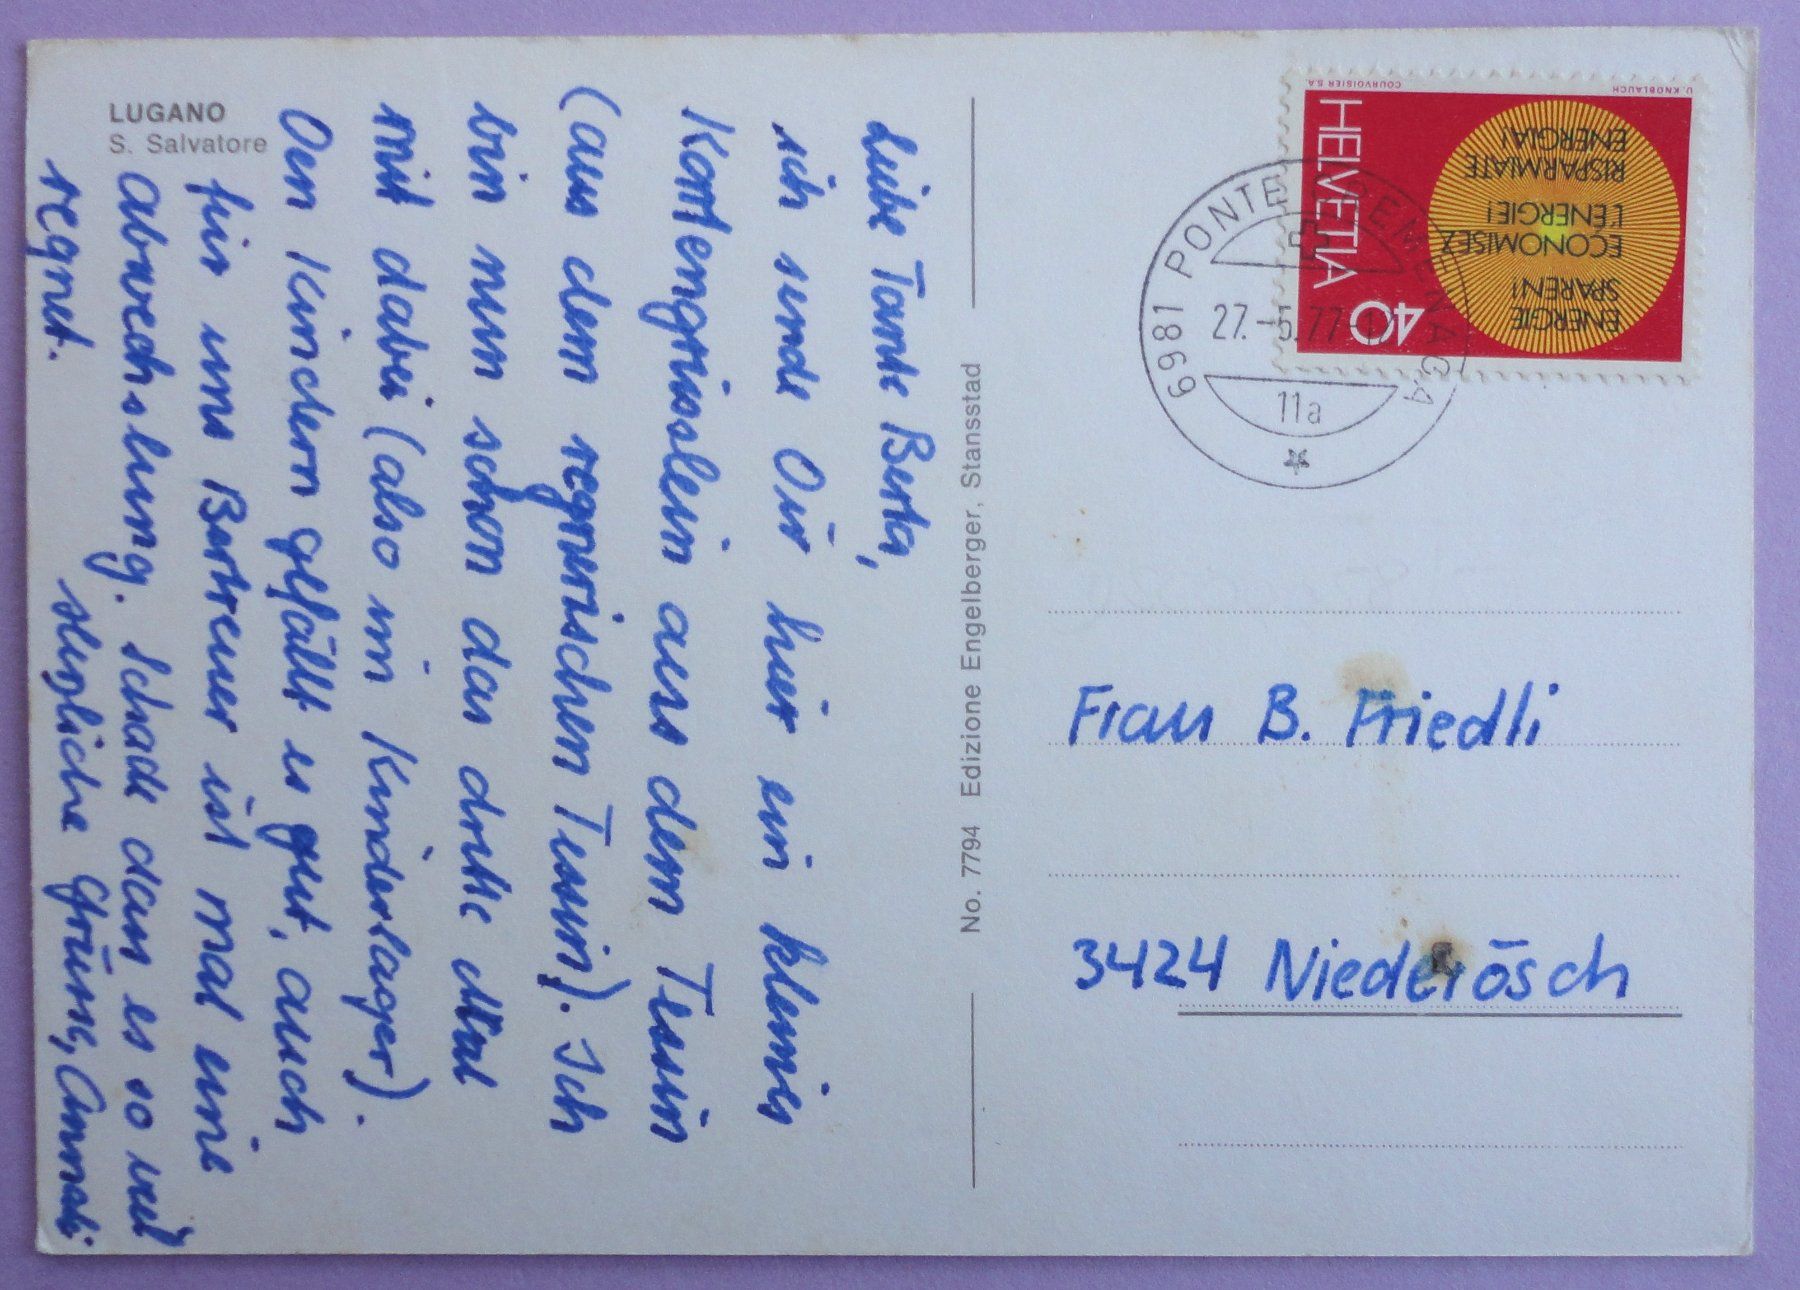 LUGANO
S. Salvatore
Liebe Tante Berta,
ich sende Dir hier ein kleines
Kartengrüsslein aus dem Tessin
(aus dem regnerischen Tessin). Ich
bin nun schon das dritte Mal
mit dabei (also im Kinderlager).
Den Kindern gefällt es gut, auch
für uns Betreuer ist mal eine
abwechslung. Schade dass es so viel
regnet.
Herzliche Grüsse, Annali
No. 7794 Edizione Engelberger, Stansstad
U. KNOBLAUCH
COURVOISIER S.A.
HELVETIA
40
ENERGIE
SPAREN!
ECONOMISEZ
L'ENERGIE!
RISPARMIATE
ENERGIA!
6981 PONTE CREMENAGA
27.-5.77-
11a
Frau B. Friedli
3424 Niederösch